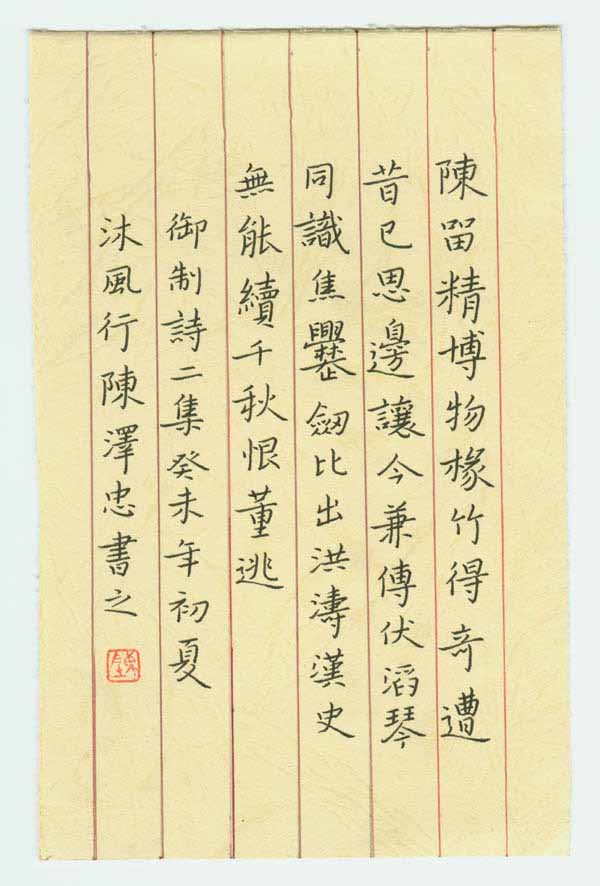 陳留精博物椽竹得奇遭
昔已思邊讓今兼傳伏滔琴
同識焦爨劒比出洪濤漢史
無能續千秋恨董逃
御制詩二集癸未年初夏
沐風行陳澤忠書之